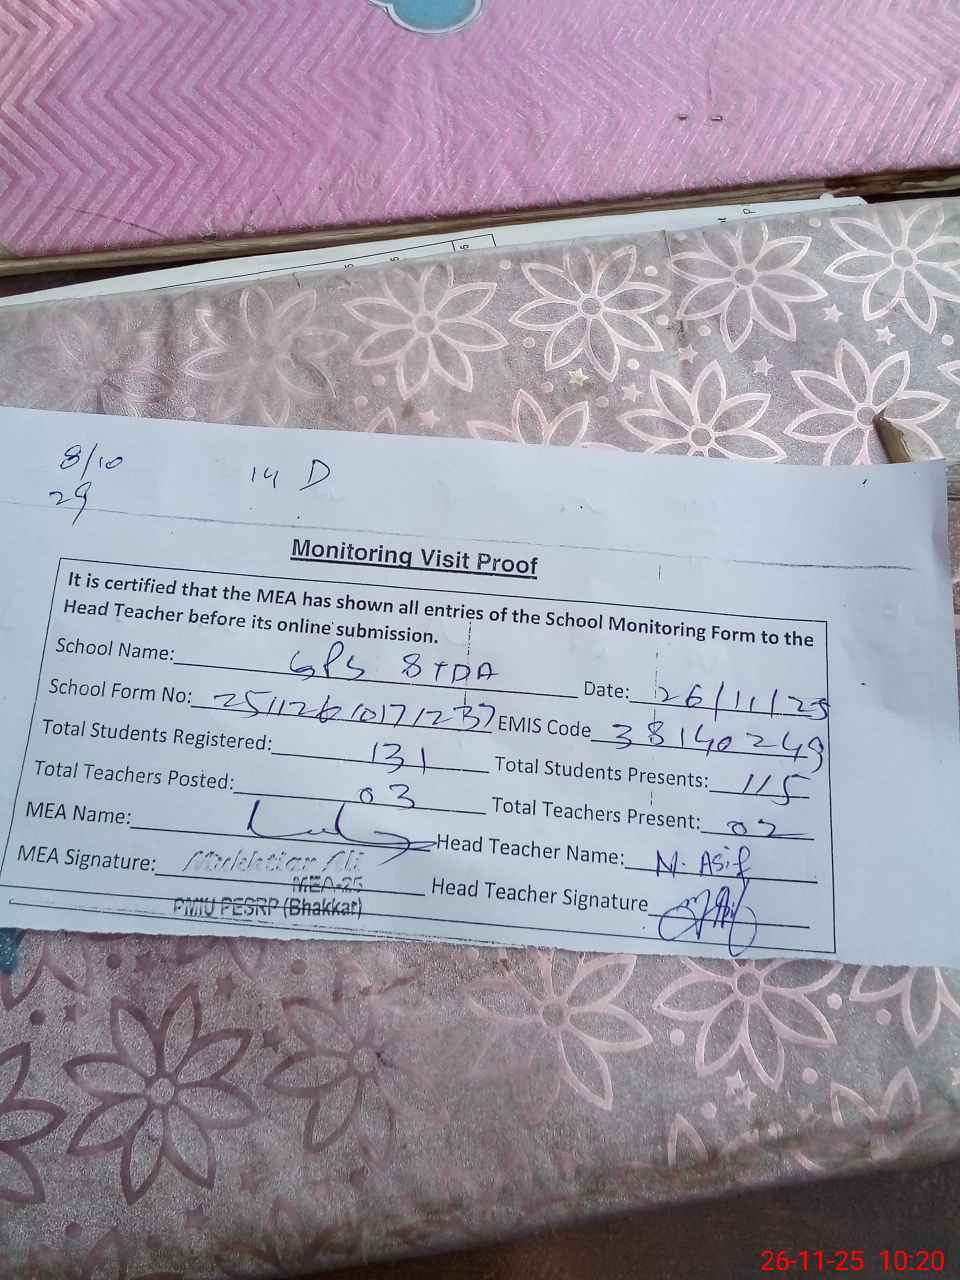 8/10 14 D
29
Monitoring Visit Proof
It is certified that the MEA has shown all entries of the School Monitoring Form to the
Head Teacher before its online submission.
School Name: GPS 8TDA Date: 26/11/25
School Form No: 25112610171237 EMIS Code 38140249
Total Students Registered: 131 Total Students Presents: 115
Total Teachers Posted: 03 Total Teachers Present: 02
MEA Name: Head Teacher Name: M. Asif
MEA Signature: Mukhtiar Ali Head Teacher Signature
MEA-25
PMIU PESRP (Bhakkar)
26-11-25 10:20